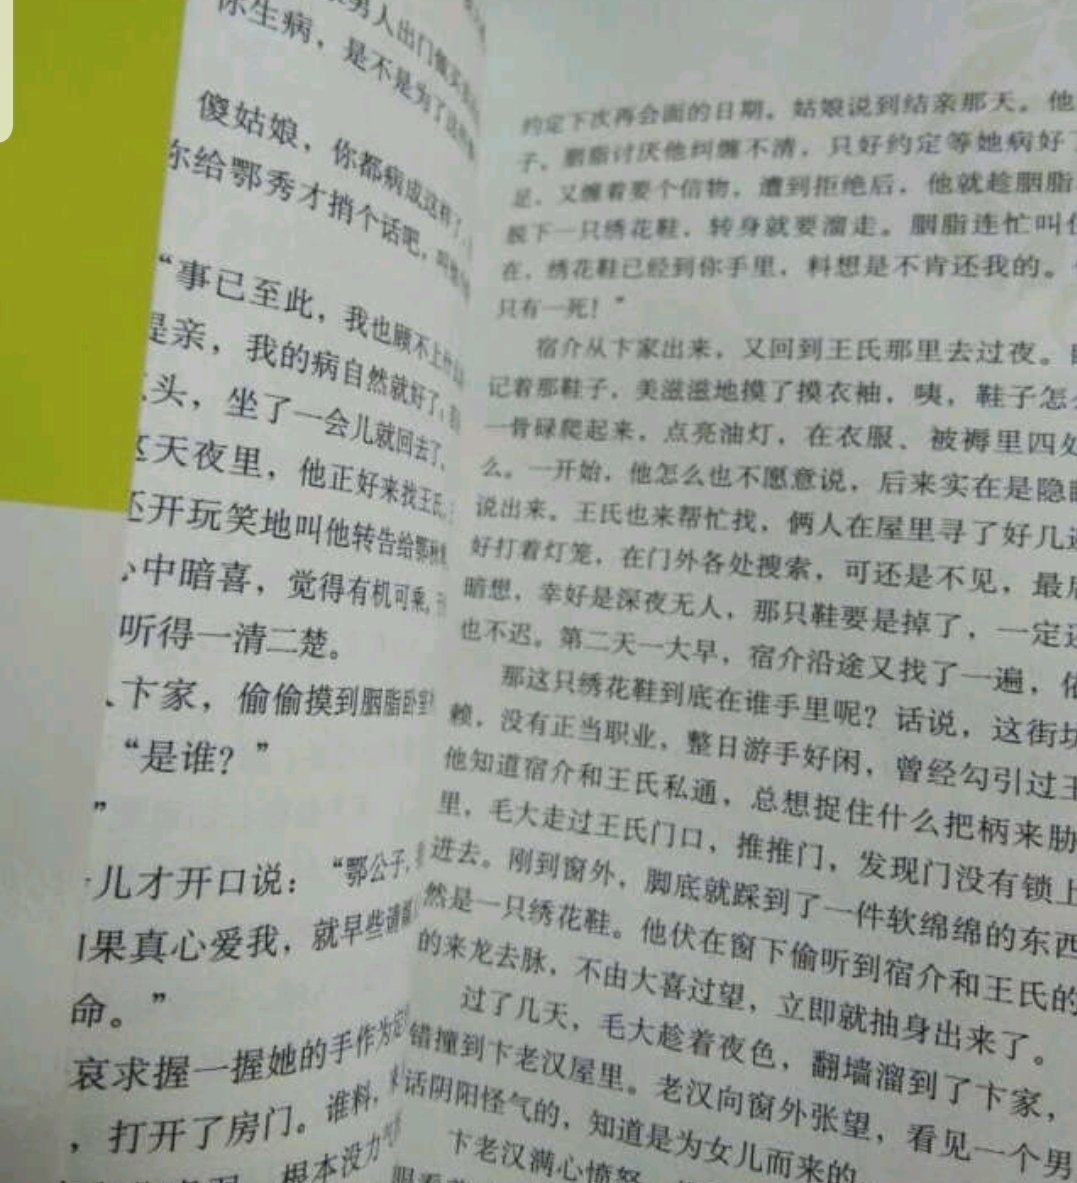 男人出门做
你生病，是不是为了这
傻姑娘，你都病成这样了，
你给鄂秀才捎个话吧，
“事已至此，我也顾不上什
是亲，我的病自然就好了，
头，坐了一会儿就回去了。
这天夜里，他正好来找王氏，
还开玩笑地叫他转告给鄂秋
心中暗喜，觉得有机可乘。
听得一清二楚。
卞家，偷偷摸到胭脂卧室
“是谁？”
”
儿才开口说：“鄂公子，
果真心爱我，就早些请
命。”
哀求握一握她的手作为
，打开了房门。谁料，
根本没力
约定下次再会面的日期。姑娘说到结亲那天。他
子。胭脂讨厌他纠缠不清，只好约定等她病好了
足，又缠着要个信物，遭到拒绝后，他就趁胭脂
脱下一只绣花鞋，转身就要溜走。胭脂连忙叫住
在，绣花鞋已经到你手里，料想是不肯还我的。
只有一死！”
宿介从卞家出来，又回到王氏那里去过夜。
记着那鞋子，美滋滋地摸了摸衣袖，咦，鞋子怎么
一骨碌爬起来，点亮油灯，在衣服、被褥里四处
么。一开始，他怎么也不愿意说，后来实在是隐瞒
说出来。王氏也来帮忙找，俩人在屋里寻了好几遍
好打着灯笼，在门外各处搜索，可还是不见，最后
暗想，幸好是深夜无人，那只鞋要是掉了，一定还
也不迟。第二天一大早，宿介沿途又找了一遍，依
那这只绣花鞋到底在谁手里呢？话说，这街坊
赖，没有正当职业，整日游手好闲，曾经勾引过王
他知道宿介和王氏私通，总想捉住什么把柄来胁
里，毛大走过王氏门口，推推门，发现门没有锁上
进去。刚到窗外，脚底就踩到了一件软绵绵的东西
然是一只绣花鞋。他伏在窗下偷听到宿介和王氏的
的来龙去脉，不由大喜过望，立即就抽身出来了。
过了几天，毛大趁着夜色，翻墙溜到了卞家，
错撞到卞老汉屋里。老汉向窗外张望，看见一个男
话阴阳怪气的，知道是为女儿而来的
卞老汉满心愤怒
眼看